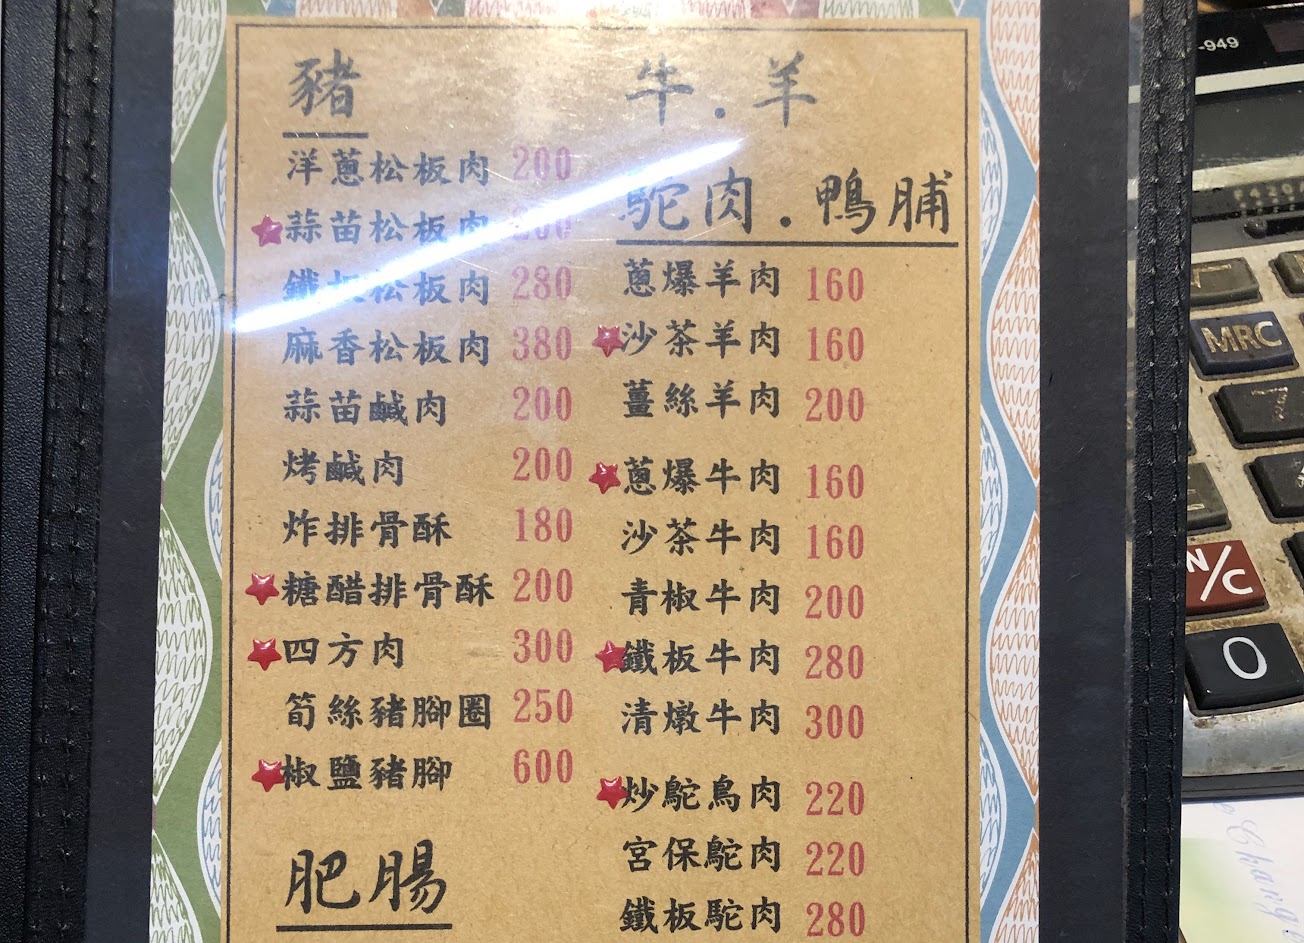 豬
洋蔥松板肉 200
蒜苗松板肉
鐵板松板肉 280
麻香松板肉 380
蒜苗鹹肉 200
烤鹹肉 200
炸排骨酥 180
糖醋排骨酥 200
四方肉 300
筍絲豬腳圈 250
椒鹽豬腳 600
肥腸
牛.羊
駝肉.鴨脯
蔥爆羊肉 160
沙茶羊肉 160
薑絲羊肉 200
蔥爆牛肉 160
沙茶牛肉 160
青椒牛肉 200
鐵板牛肉 280
清燉牛肉 300
炒鴕鳥肉 220
宮保鴕肉 220
鐵板駝肉 280
-949
MRC
N/C
0